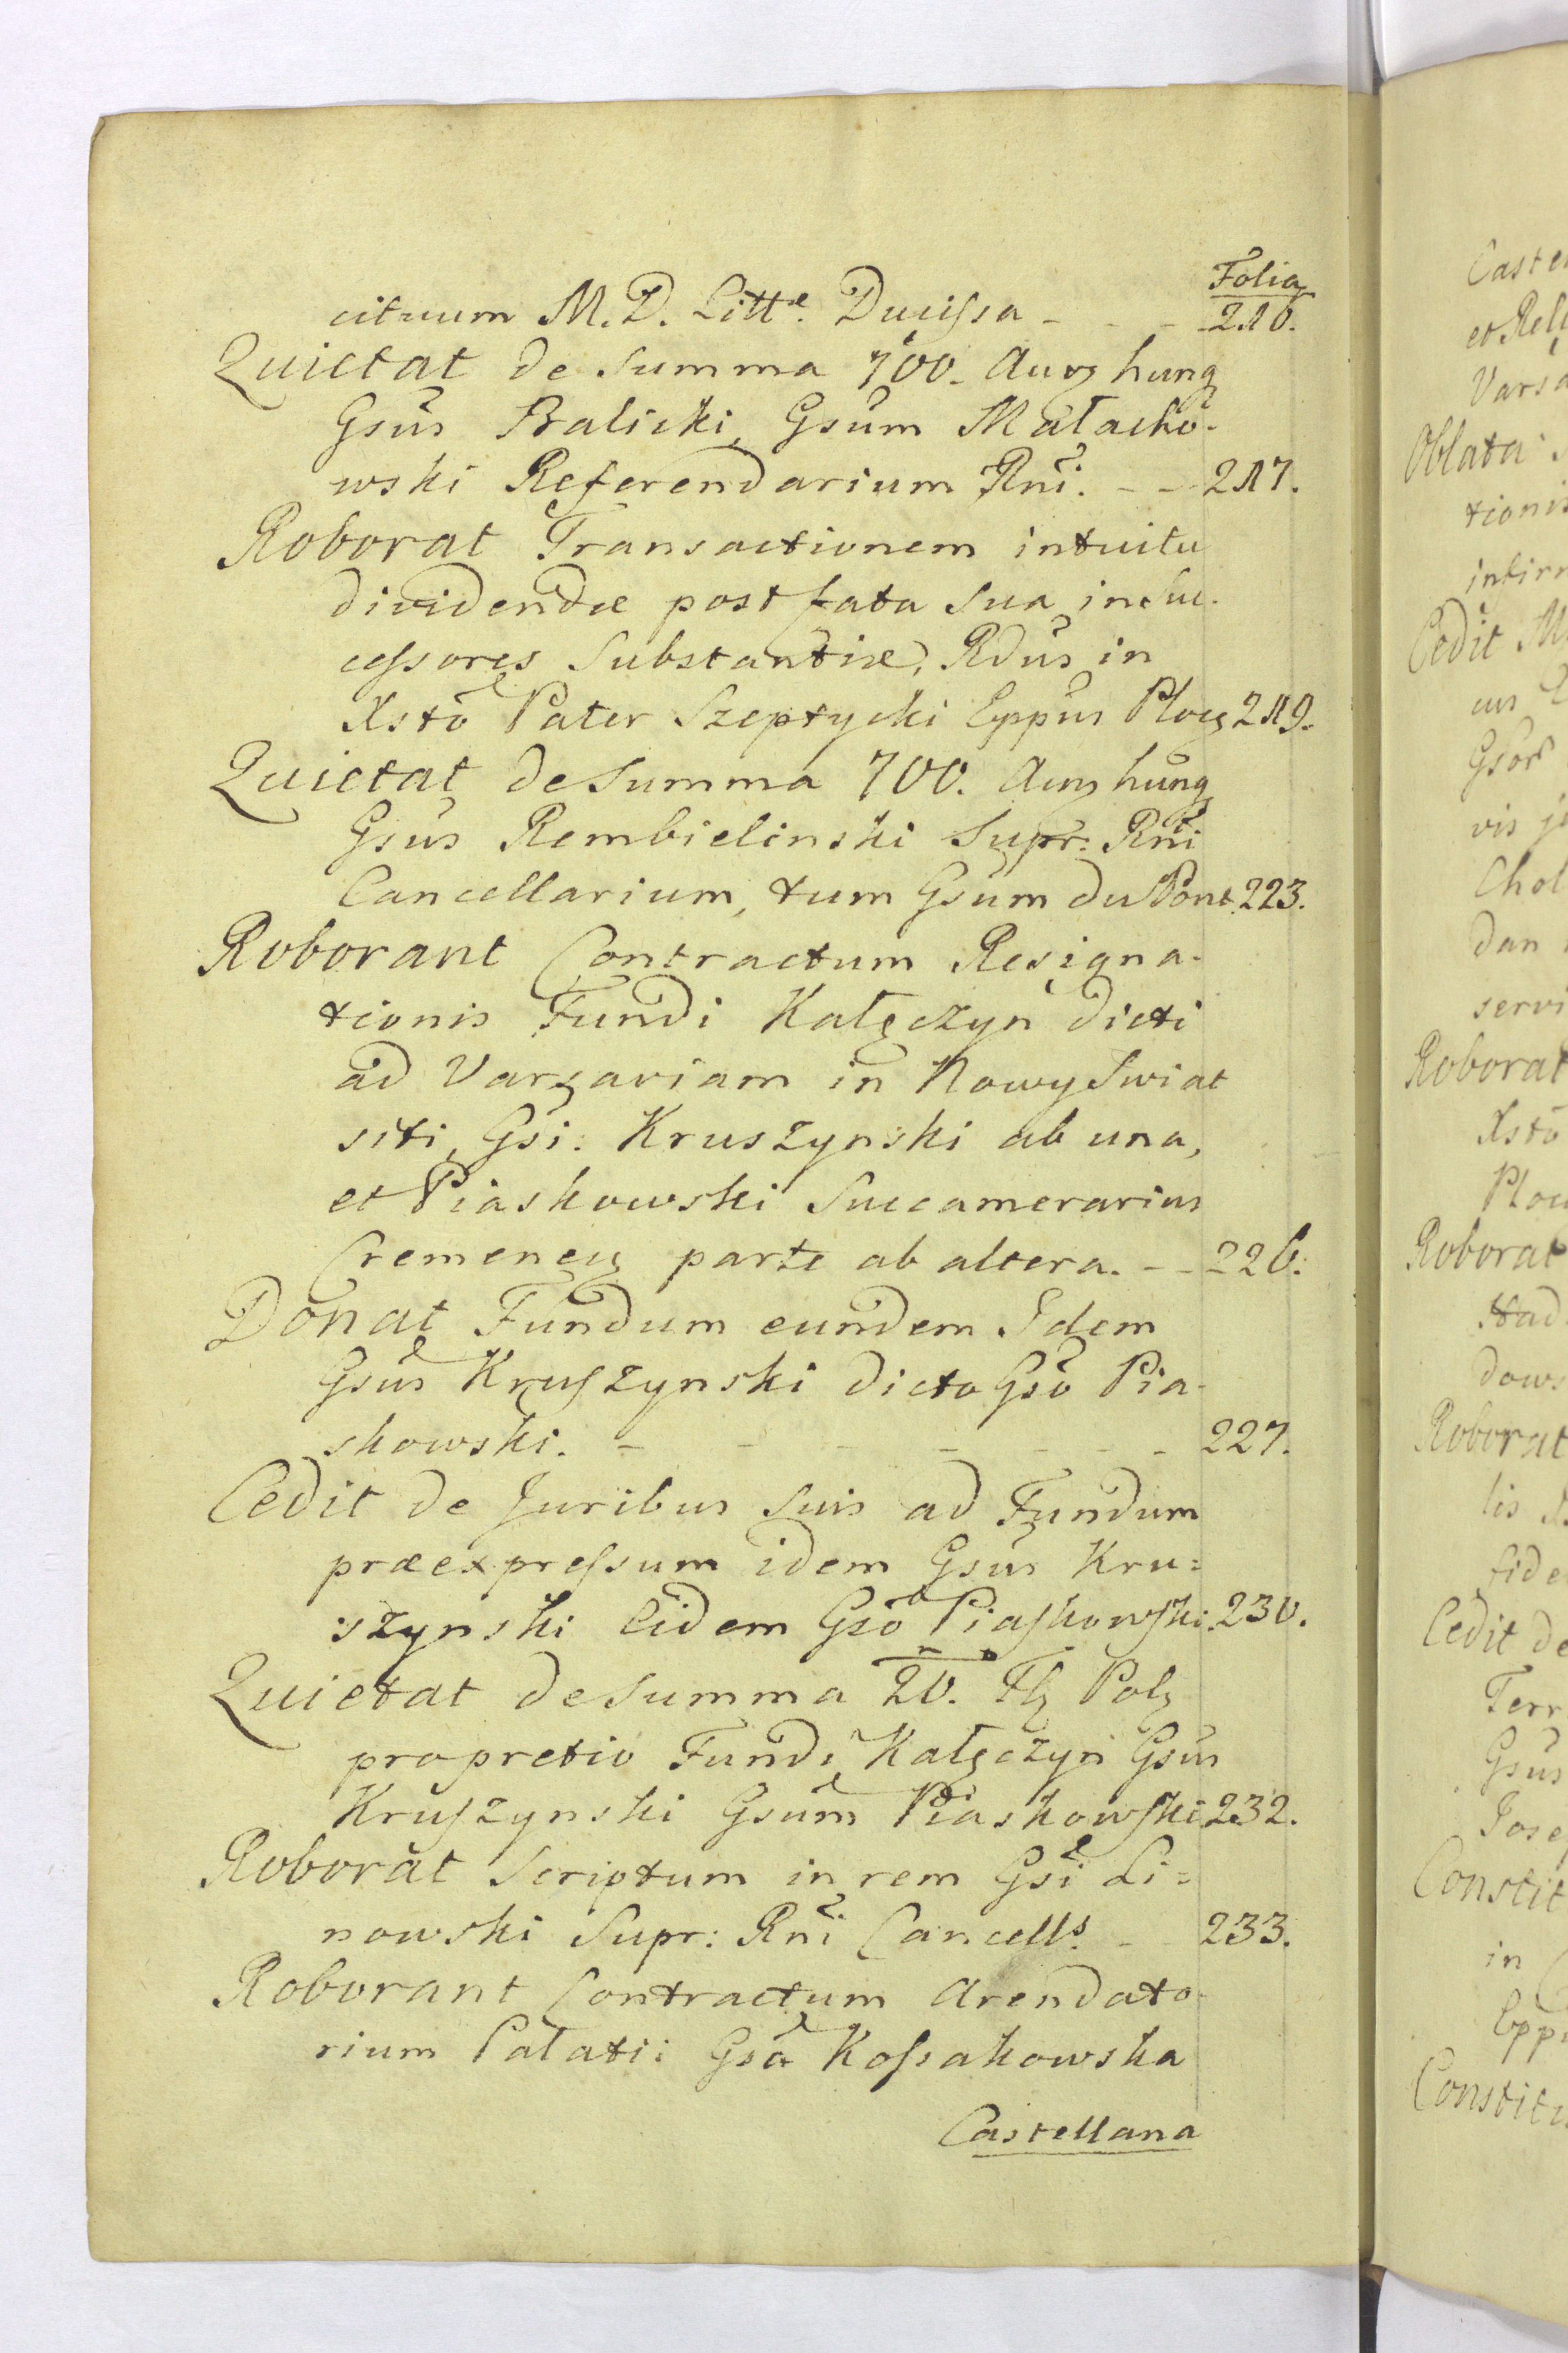 Folia
citruum M. D. Litt.e Ducissa - - - 216.
Quietat de Summa 700. Aurz hung
Gsūs Balicki, Gsūm Małacho-
wski Referendarium Rnī. - - 217.
Roborat Transactionem intuitu
dividendæ post fata sua in suc-
cessores Substantiæ, Rdūs in
Xstō Pater Szeptycki Eppūs Plocz 219.
Quietat de Summa 700. Aurz hung
Gsūs Rembielinski Supr: Rnī
Cancellarium, tum Gsūm du Pont. 223.
Roborant Contractum Resigna-
tionis Fundi Kałęczyn dicti
ad Varsaviam in Nowy Swiat
siti, Gsī: Kruszynski ab una,
et Piaskowski Succamerarius
Cremenecz parte ab altera. - - 226.
Donat Fundum eundem Idem
Gsūs Kruszynski dicto Gsō Pia-
skowski. - - - - - - - 227.
Cedit de Juribus suis ad Fundum
præexpressum idem Gsūs Kru=
szynski Eidem Gsō Piaskowski. 230.
Quietat de Summa 20. Flz Polz
pro pretio Fundi Kałęczyn Gsūs
Kruszynski Gsūm Piaskowski 232.
Roborat Scriptum in rem Gsī Li=
nowski Supr: Rnī Cancells. - - 233.
Roborant Contractum Arendato-
rium Palatii Gsā Kossakowska
Castellana
Caste
et Reli
Varsa
Oblata
tionis
infir
Cedit M
cus
Gsor
vis
Chol
dan
servi
Roborat
Xstō
Ploc
Roborat
Had
dows
Roborat
lis
fide
Cedit de
Terr
Gsus
Jose
Constit
in
Epp
Constitu